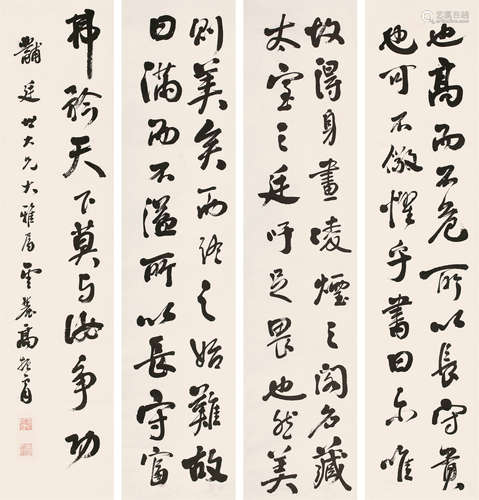 也高而不危所以長守貴
也可不儆懼乎書曰尔唯
故得身畫凌煙之閣名藏
太室之廷吁足畏也然美
則美矣而終之始難故
曰滿而不溢所以長守富
弗矜天下莫与汝爭功
黼廷世大兄大雅屬 雲麓高